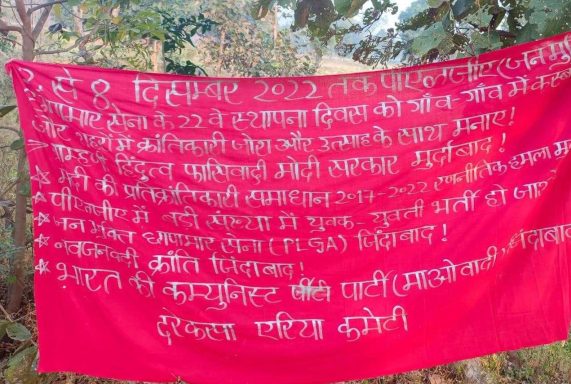 2 से 8 दिसम्बर 2022 तक पीएलजीए (जनमु
छापामार सेना के 22 वे स्थापना दिवस को गाँव-गाँव में कस्बा
और शहरों में क्रांतिकारी जोश और उत्साह के साथ मनाए!
हिंदुत्व फासिवादी मोदी सरकार मुर्दाबाद!
की प्रतिक्रांतिकारी समाधान 2017-2022 रणनीतिक हमला
पीएलजीए में बड़ी संख्या में युवक-युवती भर्ती हो जाओ
जन मुक्त छापामार सेना (PLGA) जिंदाबाद!
नवजनवादी क्रांति जिंदाबाद!
भारत की कम्युनिस्ट पार्टी (माओवादी) जिंदाबाद
दरेकसा एरिया कमेटी